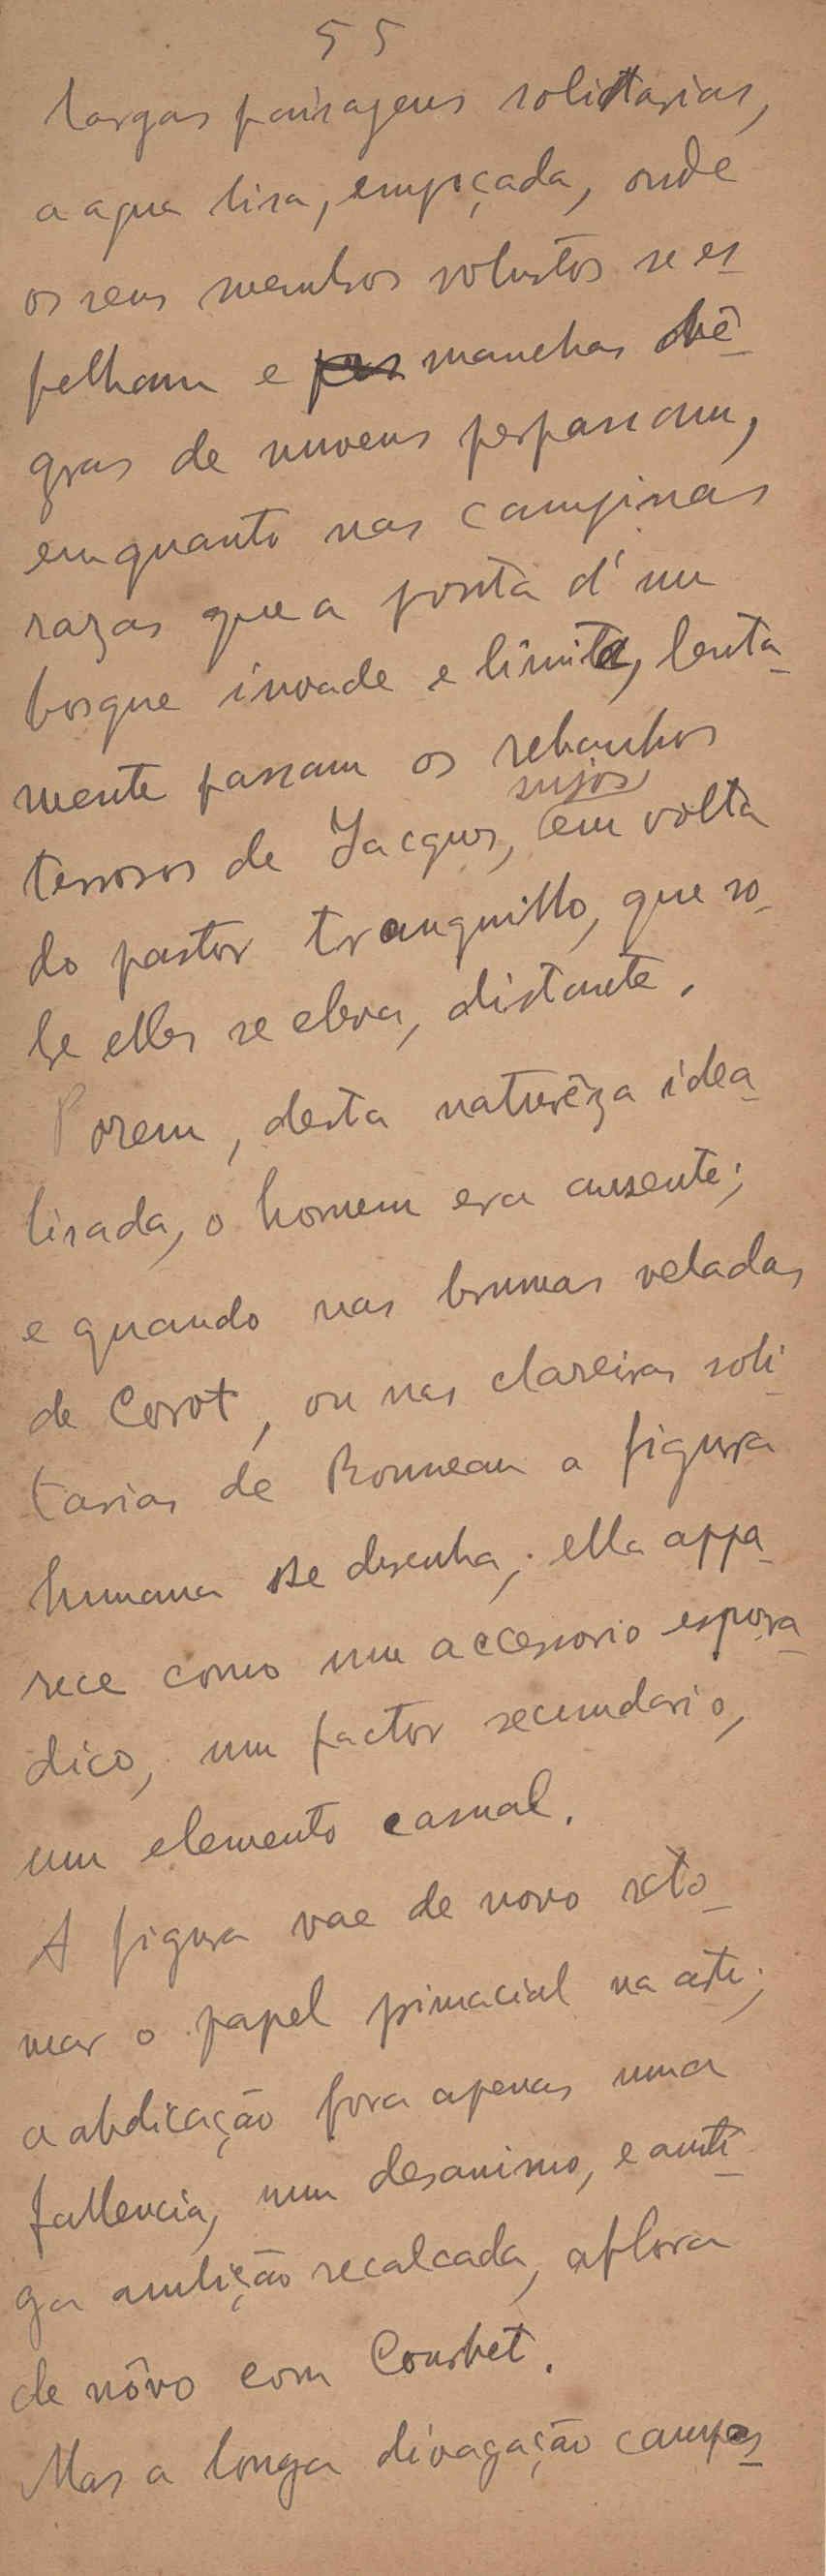 55
largas paisagens solitarias,
a agua lisa, empoçada, onde
os seus membros robustos se es-
pelham e manchas nê-
gras de nuvens perpassam,
emquanto nas campinas
razas que a ponta d'um
bosque invade e limita, lenta-
mente passam os rebanhos
sujos
terrosos de Jacques, em volta
do pastor tranquillo, que so-
bre elles se eleva, distante.
Porem, desta naturêza idea-
lisada, o homem era ausente;
e quando nas brumas veladas
de Corot, ou nas clareiras soli-
tarias de Rousseau a figura
humana se desenha, ella appa-
rece como um accessorio espora-
dico, um factor secundario,
um elemento casual.
A figura vae de novo reto-
mar o papel primacial na arte;
a abdicação fora apenas uma
fallencia, um desanimo, e a anti-
ga ambição recalcada, aflora
de nôvo com Courbet.
Mas a longa divagação campes-